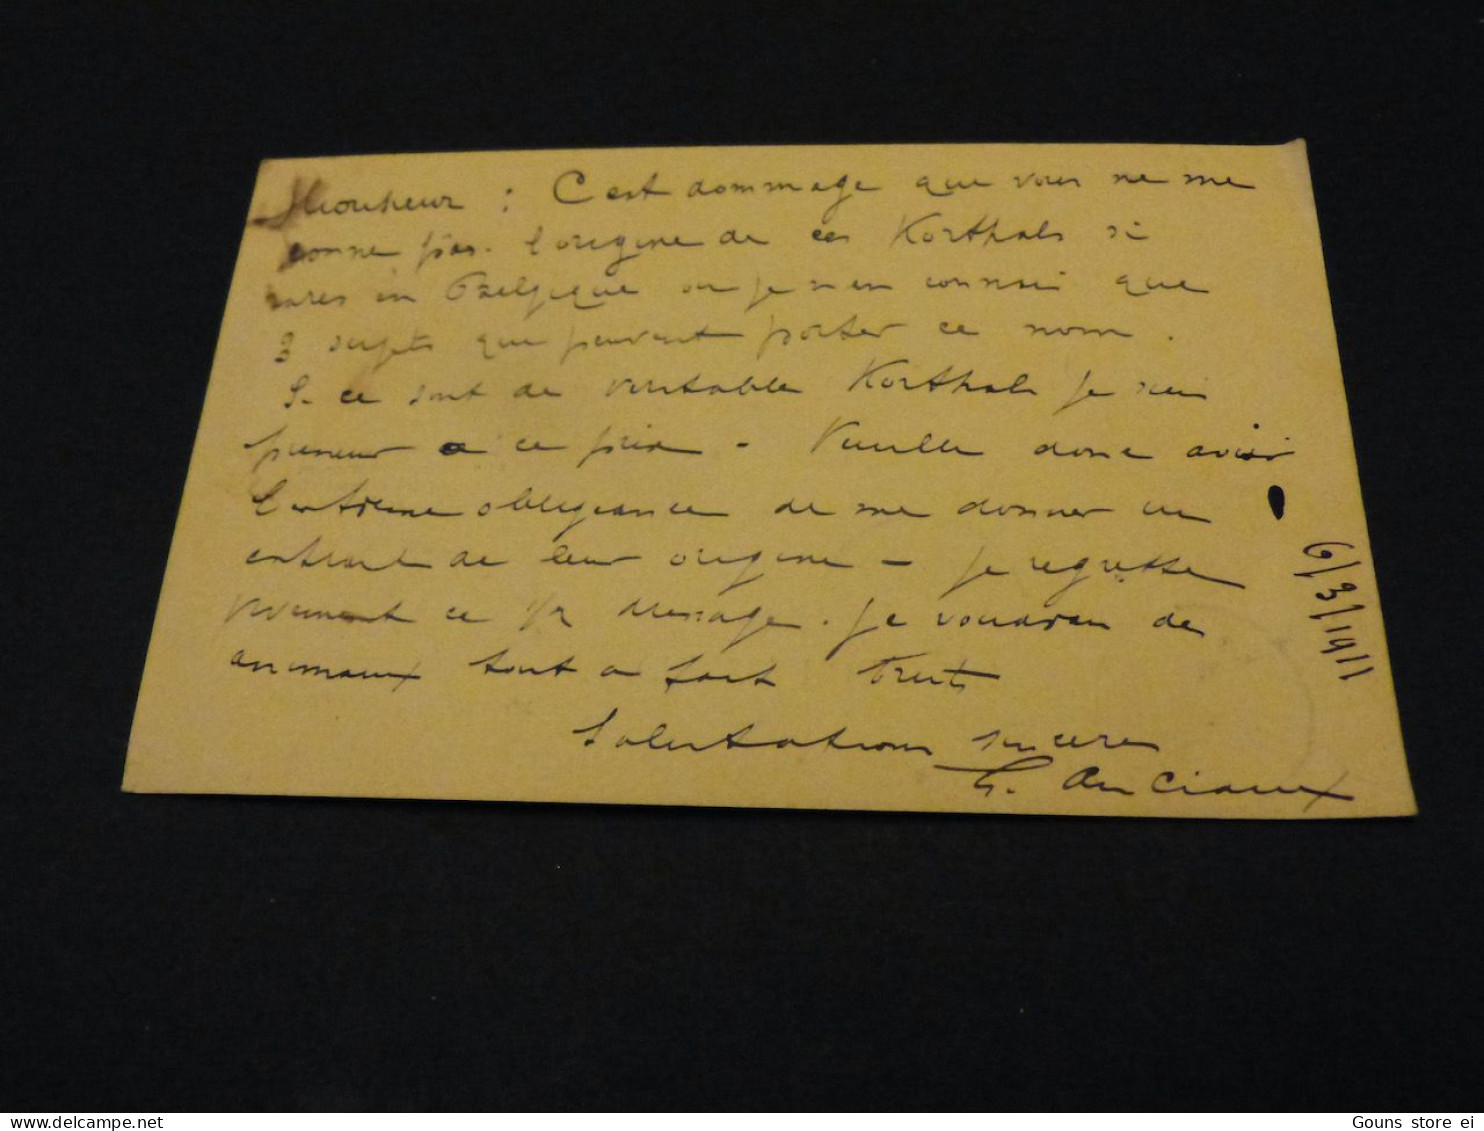 Monsieur : C'est dommage que vous ne me
donne pas l'origine de ces Korthals si
rares en Belgique ou je n'en connai que
3 sujets que peuvent porter ce nom.
Si ce sont de veritable Korthals je suis
preneur a ce prix - Veuille donc avoir
l'extreme obligeance de me donner un
extrait de leur origine - je regrette
vivement ce 1/2 dressage. je voudrai des
animaux tout a fait bruts
Salutations sinceres
G. Anciaux
6/3/1911
Gouns store ei